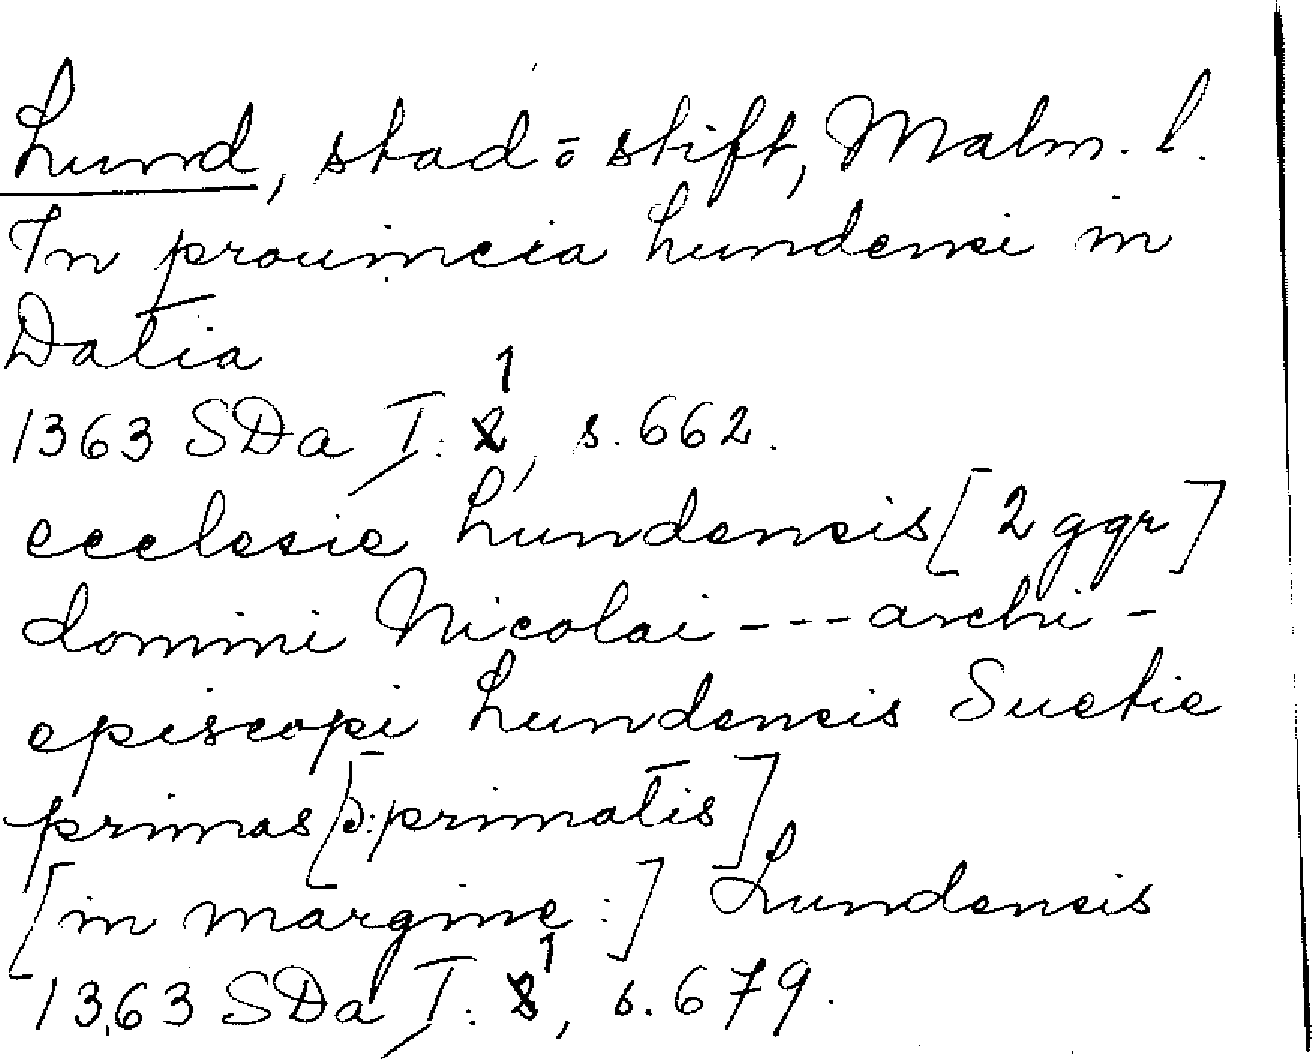 Lund, stad o stift, Malm. l.
In prouincia Lundensi in
Datia
1363 SDa I: 1, s. 662.
ecclesie Lundensis [2 ggr]
domini Nicolai --- archi-
episcopi Lundensis Suetie
primas [ɔ: primatis]
[in margine:] Lundensis
1363 SDa I: 1, s. 679.